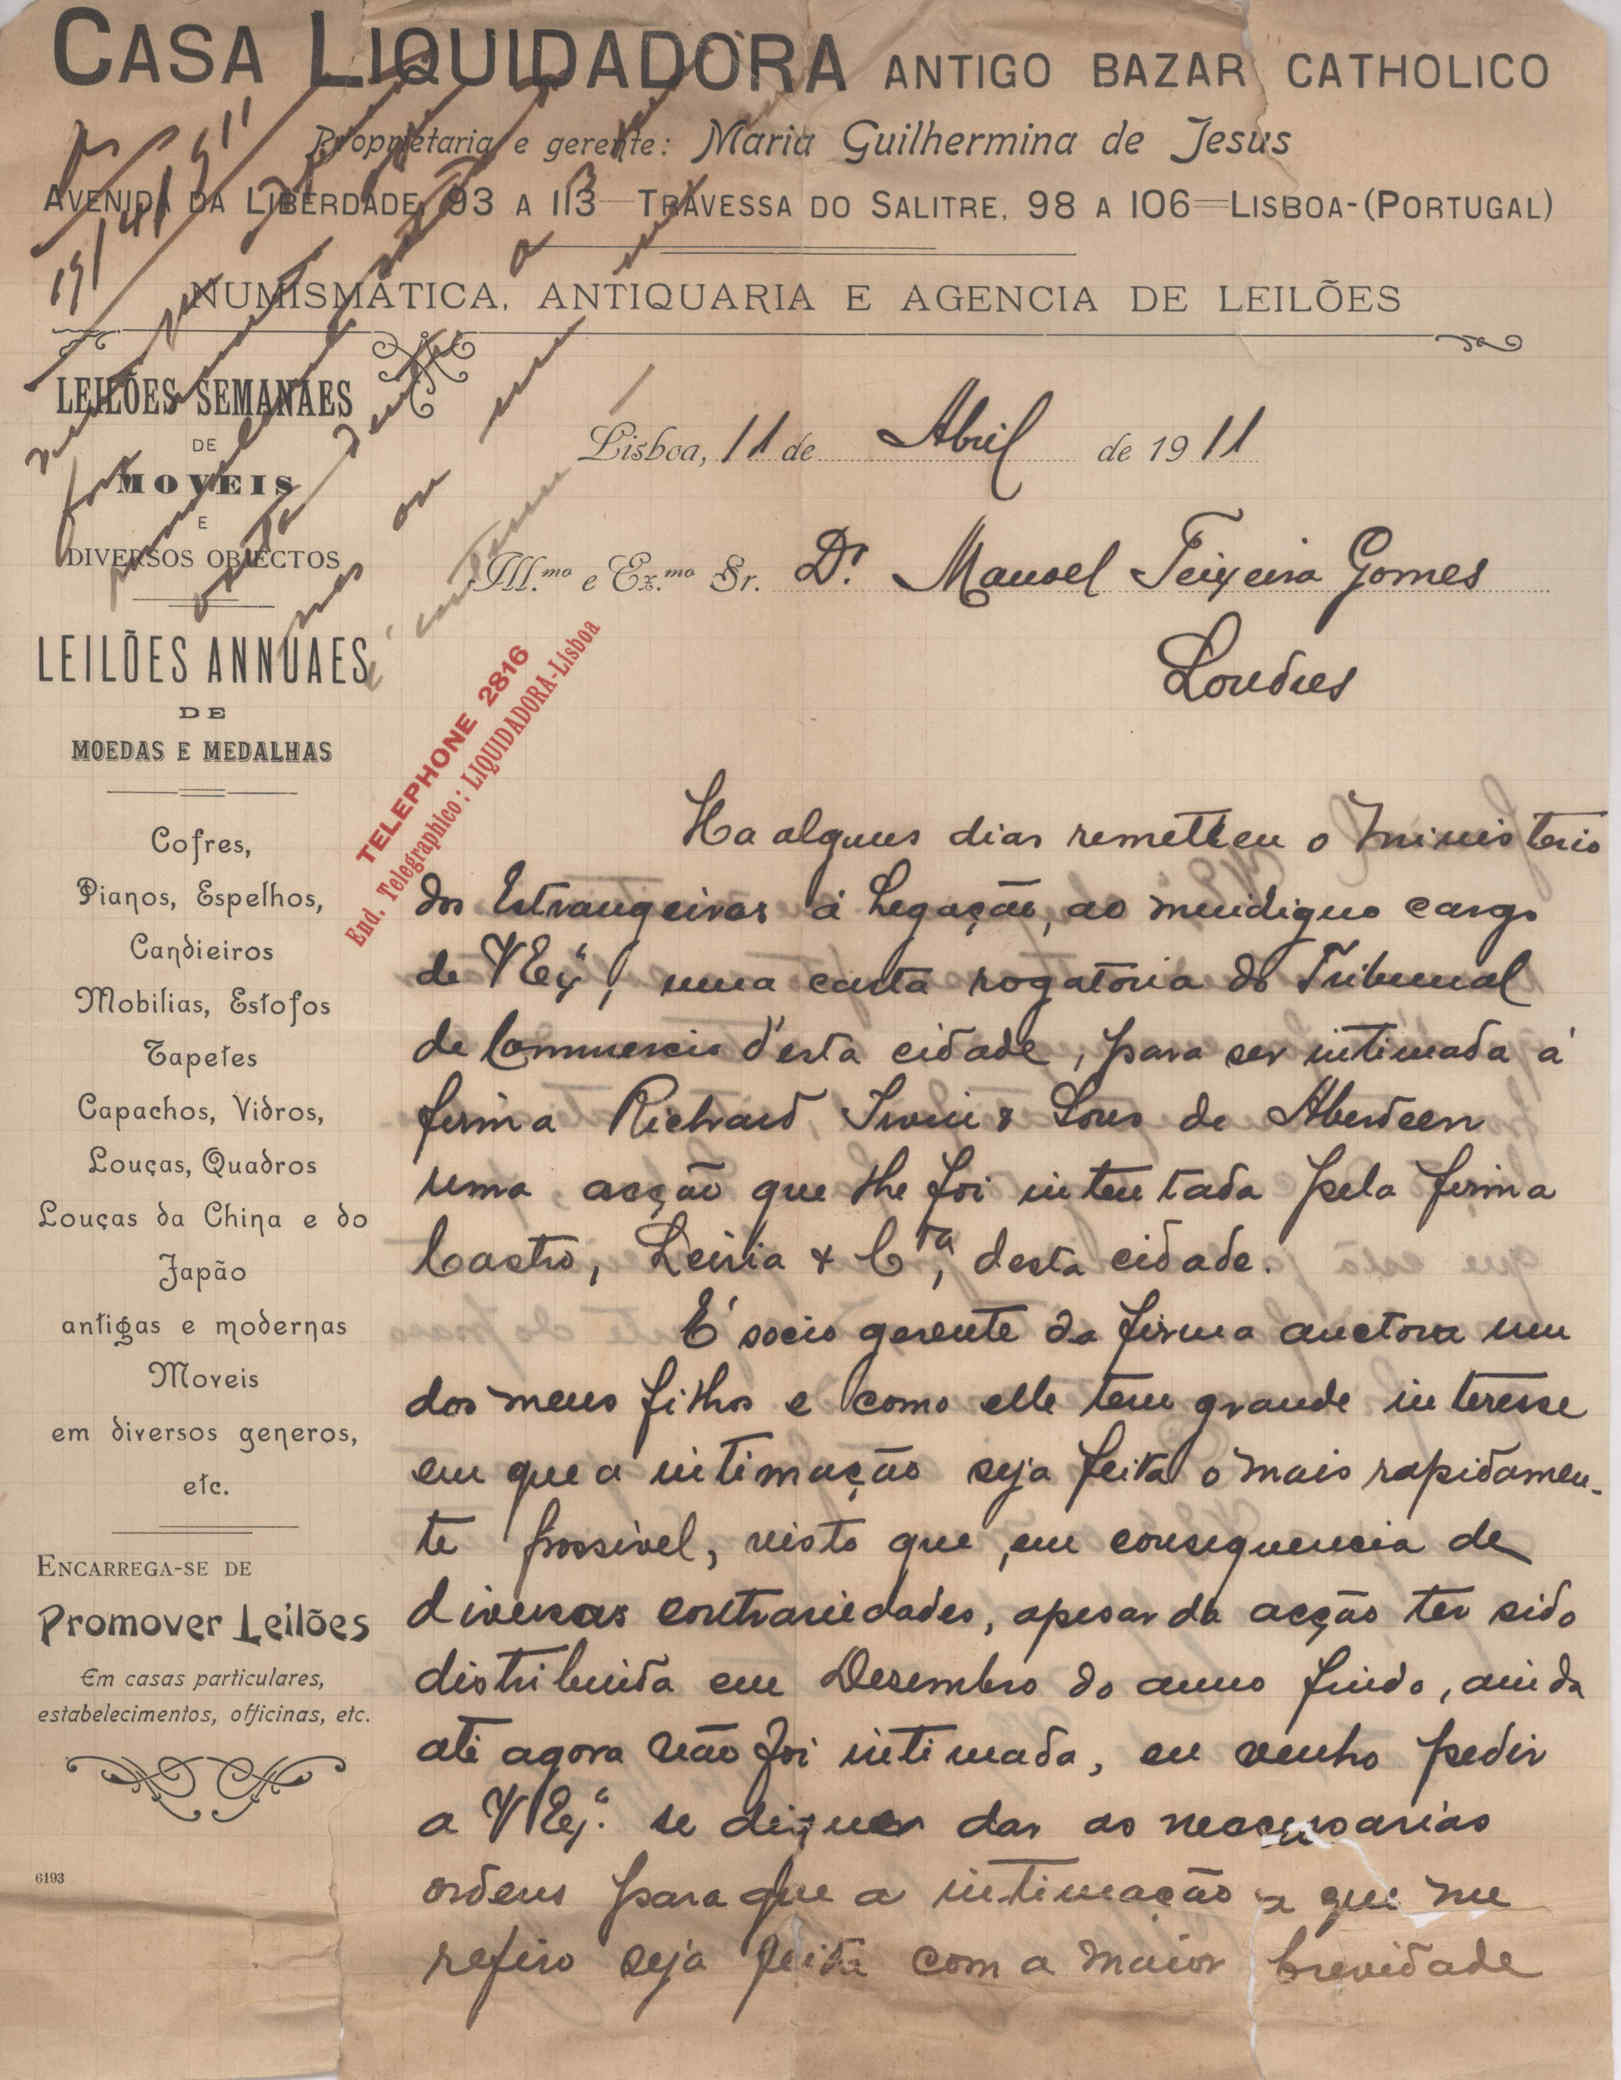 CASA LIQUIDADORA ANTIGO BAZAR CATHOLICO
Proprietaria e gerente: Maria Guilhermina de Jesus
AVENIDA DA LIBERDADE, 93 A 113—TRAVESSA DO SALITRE, 98 A 106—LISBOA-(PORTUGAL)
NUMISMATICA, ANTIQUARIA E AGENCIA DE LEILÕES
19/4/911
LEILÕES SEMANAES
DE
MOVEIS
E
DIVERSOS OBJECTOS
LEILÕES ANNUAES
DE
MOEDAS E MEDALHAS
Cofres,
Pianos, Espelhos,
Candieiros
Mobilias, Estofos
Tapetes
Capachos, Vidros,
Louças, Quadros
Louças da China e do
Japão
antigas e modernas
Moveis
em diversos generos,
etc.
ENCARREGA-SE DE
Promover Leilões
Em casas particulares,
estabelecimentos, officinas, etc.
6193
TELEPHONE 2816
End. Telegraphico: LIQUIDADORA-Lisboa
Lisboa, 11 de Abril de 1911
Ill.mo e Ex.mo Sr. Dr. Manoel Teixeira Gomes
Londres
Ha alguns dias remetteu o Ministerio
dos Estrangeiros á Legação, ao muidigno cargo
de V Exª, uma carta rogatoria do Tribunal
de Commercio d'esta cidade, para ser intimada á
firma Richard Irvin & Sons de Aberdeen
uma acção que lhe foi intentada pela firma
Castro, Leiria & Cta, desta cidade.
É socio gerente da firma auctora um
dos meus filhos e como elle tem grande interesse
em que a intimação seja feita o mais rapidamen-
te possivel, visto que, em consequencia de
diversas contrariedades, apesar da acção ter sido
distribuida em Desembro do anno findo, ainda
até agora não foi intimada, eu venho pedir
a V Exª. se digner dar as necessarias
ordens para que a intimação a que me
refiro seja feita com a maior brevidade